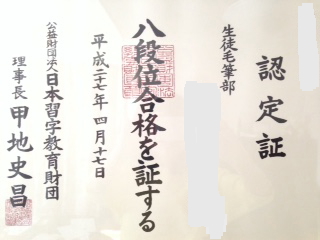 認定証
生徒毛筆部
八段位合格を証する
平成二十七年四月十七日
公益財団法人日本習字教育財団
理事長 甲地史昌